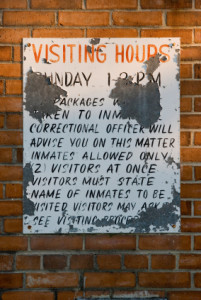 VISITING HOURS
SUNDAY 1-3 P.M.
PACKAGES
TAKEN TO INM
CORRECTIONAL OFFICER WILL
ADVISE YOU ON THIS MATTER
INMATES ALLOWED ONLY
(2) VISITORS AT ONCE
VISITORS MUST STATE
NAME OF INMATES TO BE
VISITED VISITORS MAY ASK
SEE VISITING